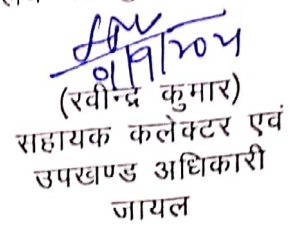 (रवीन्द्र कुमार)
सहायक कलेक्टर एवं
उपखण्ड अधिकारी
जायल